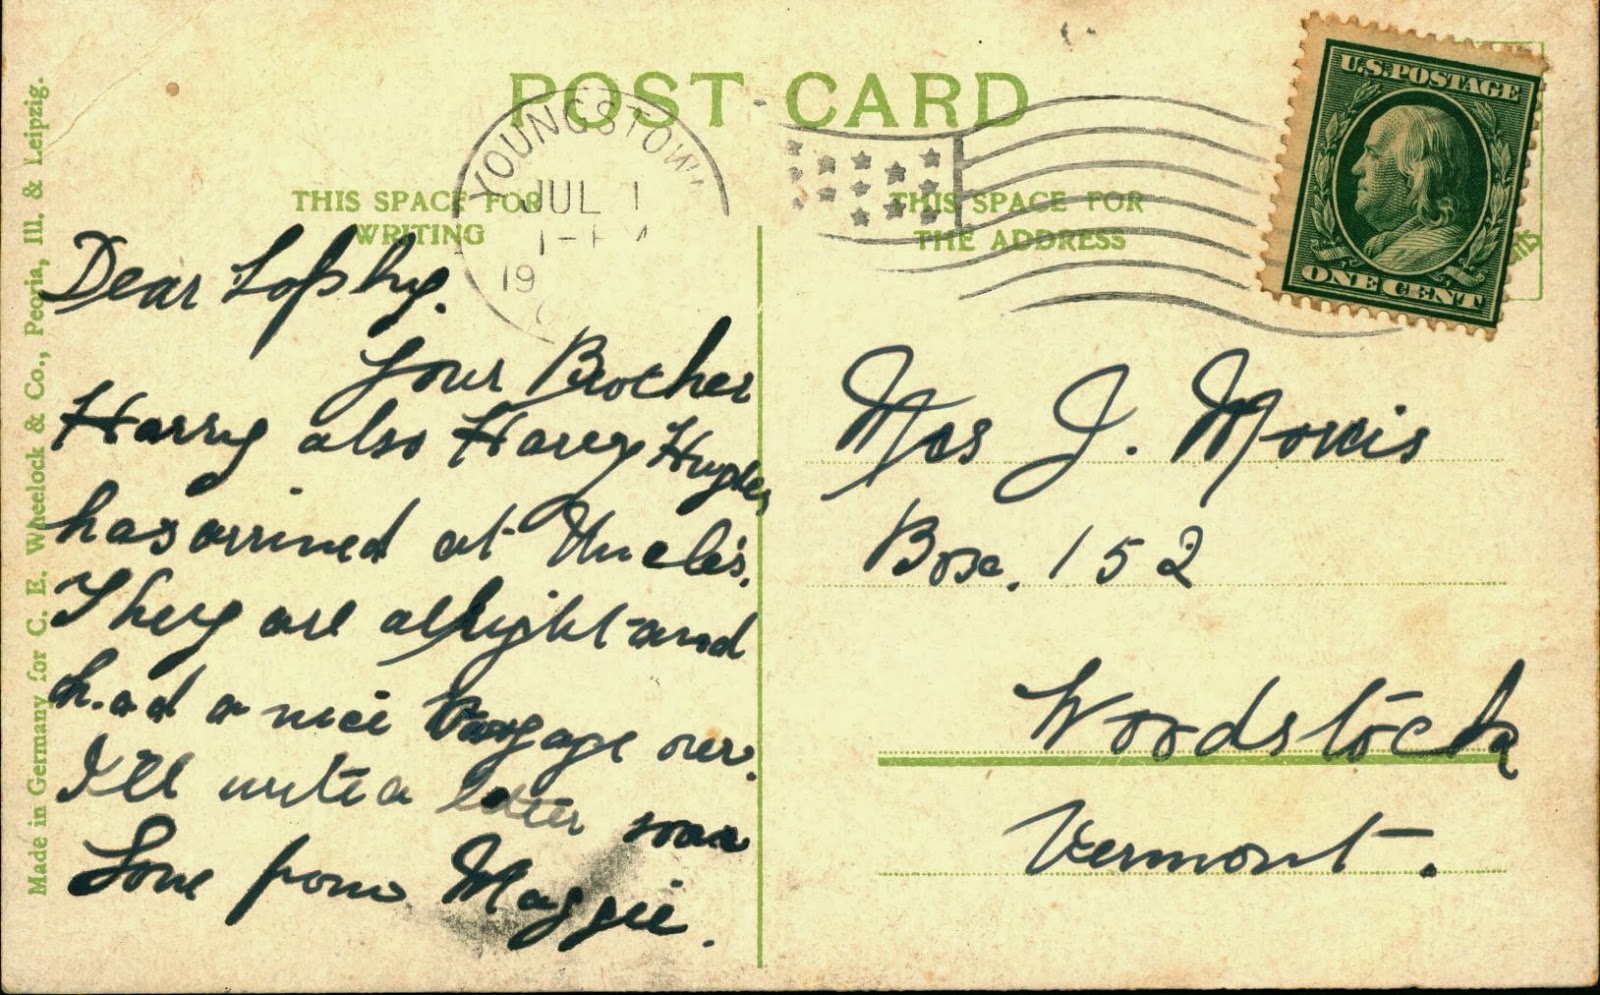 POST CARD
THIS SPACE FOR
WRITING
THIS SPACE FOR
THE ADDRESS
YOUNGSTOWN
JUL 1
19
U.S.POSTAGE
ONE CENT
Made in Germany for C. E. Wheelock & Co., Peoria, Ill. & Leipzig.
Dear
Your Brother
Harry also Harry Hughes
has arrived at Uncle's.
They are allright and
had a nice Voygage over.
I'll write a letter soon
Love from Maggie.
Mrs J. Morris
Box. 152
Woodstock
Vermont.